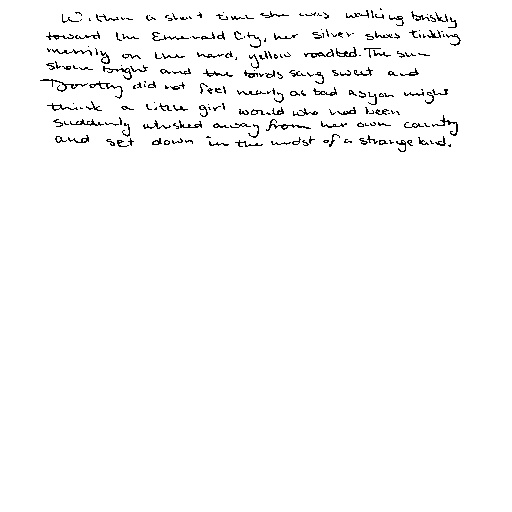 Within a short time she was walking briskly
toward the Emerald City, her Silver Shoes tinkling
merrily on the hard, yellow roadbed. The sun
shone bright and the birds sang sweet and
Dorothy did not feel nearly as bad as you might
think a little girl would who had been
suddenly whisked away from her own country
and set down in the midst of a strange land.